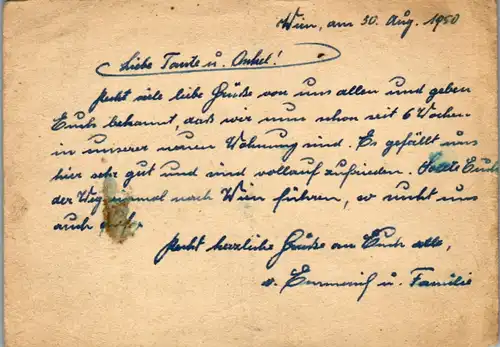 Wien, am 30. Aug. 1950
Liebe Tante u. Onkel!
Recht viele liebe Grüße von uns allen und geben
Euch bekannt, daß wir nun schon seit 6 Wochen
in unserer neuen Wohnung sind. Es gefällt uns
hier sehr gut und sind vollauf zufrieden. Sollte Euch
der Weg einmal nach Wien führen, so sucht uns
auch auf.
Recht herzliche Grüße an Euch alle,
v. Emmerich u. Familie